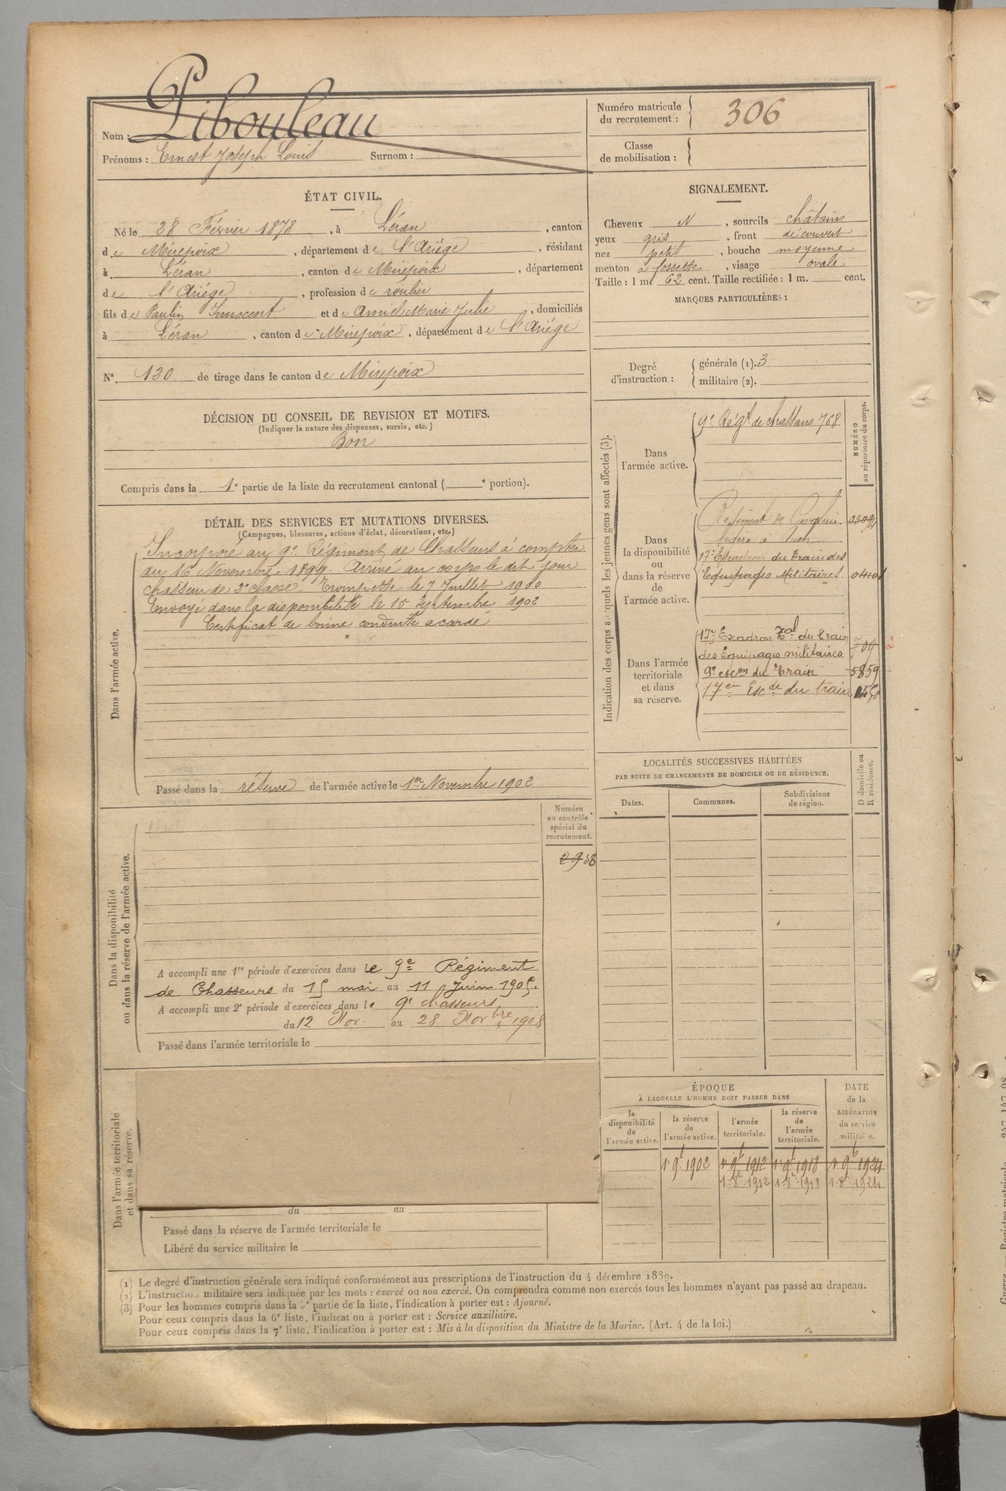 Nom : Pibouleau
Prénoms : Ernest Joseph Louis Surnom :
Numéro matricule du recrutement : 306
Classe de mobilisation :
ÉTAT CIVIL.
Né le 28 Février 1878, à Léran, canton
de Mirepoix, département de l'Ariège, résidant
à Léran, canton de Mirepoix, département
de l'Ariège, profession de roulier
fils de Paulin Innocent et de Anniel Marie Julie, domiciliés
à Léran, canton de Mirepoix, département de l'Ariège
N° 130 de tirage dans le canton de Mirepoix
SIGNALEMENT.
Cheveux N, sourcils châtains
yeux gris, front découvert
nez petit, bouche moyenne
menton à fossette, visage ovale
Taille : 1 m 62 cent. Taille rectifiée : 1 m. cent.
MARQUES PARTICULIÈRES :
Degré d'instruction : générale (1). 3
militaire (2).
DÉCISION DU CONSEIL DE REVISION ET MOTIFS.
(Indiquer la nature des dispenses, sursis, etc.)
Bon
Compris dans la 1e partie de la liste du recrutement cantonal ( e portion).
DÉTAIL DES SERVICES ET MUTATIONS DIVERSES.
(Campagnes, blessures, actions d'éclat, décorations, etc.)
Dans l'armée active.
Incorporé au 9e Régiment de Chasseurs à compter
du 16 Novembre 1899. Arrivé au corps le dit jour
chasseur de 2e classe. Trompette le 7 Juillet 1900
Envoyé dans la disponibilité le 15 Septembre 1902
Certificat de bonne conduite accordé
Passé dans la réserve de l'armée active le 1er Novembre 1902
Indication des corps auxquels les jeunes gens sont affectés (3).
NUMÉRO au répertoire du corps.
Dans l'armée active.
9e Régt de chasseurs 768
Dans la disponibilité ou dans la réserve de l'armée active.
Régiment de Cavalerie
17e Escadron du Train des
Equipages Militaires
Dans l'armée territoriale et dans sa réserve.
17e Escadron Tal du Train
des Equipages militaires 709
9e escon du Train 5859
17em Escd du train
2
LOCALITÉS SUCCESSIVES HABITÉES
PAR SUITE DE CHANGEMENTS DE DOMICILE OU DE RÉSIDENCE.
Dates. Communes. Subdivisions de région. D domicile ou R résidence.
Numéro au contrôle spécial du recrutement.
Dans la disponibilité ou dans la réserve de l'armée active.
A accompli une 1re période d'exercices dans le 9e Régiment
de Chasseurs du 15 mai au 11 Juin 1905.
A accompli une 2e période d'exercices dans le 9e chasseurs
du 12 Nov. au 28 Novbre 1908
Passé dans l'armée territoriale le
Dans l'armée territoriale et dans sa réserve.
du au
Passé dans la réserve de l'armée territoriale le
Libéré du service militaire le
ÉPOQUE
À LAQUELLE L'HOMME DOIT PASSER DANS
la disponibilité de l'armée active.
la réserve de l'armée active.
l'armée territoriale.
la réserve de l'armée territoriale.
DATE de la LIBÉRATION du service militaire.
1er 9b 1902 1er 9b 1912 1er 9b 1918 1er 9b 1924
1-8e-1912 1-8e-1918 1-8e-1924
(1) Le degré d'instruction générale sera indiqué conformément aux prescriptions de l'instruction du 4 décembre 1889.
(2) L'instruction militaire sera indiquée par les mots : exercé ou non exercé. On comprendra comme non exercés tous les hommes n'ayant pas passé au drapeau.
(3) Pour les hommes compris dans la 5e partie de la liste, l'indication à porter est : Ajourné.
Pour ceux compris dans la 6e liste, l'indication à porter est : Service auxiliaire.
Pour ceux compris dans la 7e liste, l'indication à porter est : Mis à la disposition du Ministre de la Marine. (Art. 4 de la loi.)